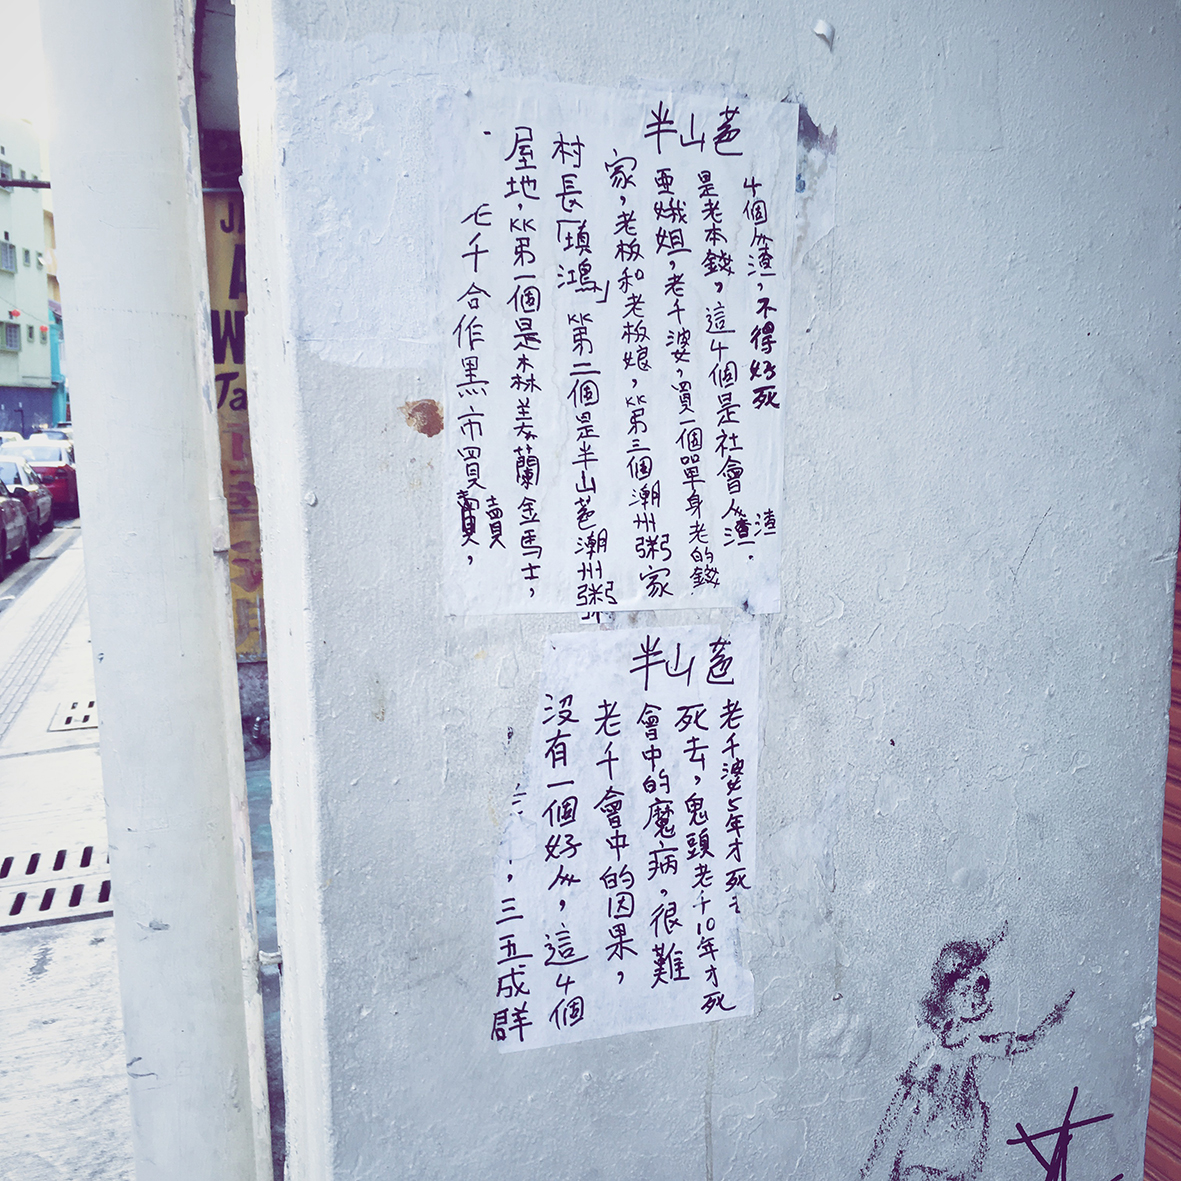 半山芭
4個人渣，不得好死
是老本錢，這4個是社會人渣渣.
亜娥姐，老千婆，買一個單身老的錢.
家，老板和老板娘，KK弟三個潮州粥家
村長「填鴻」KK弟二個是半山芭潮州粥
屋地，KK弟一個是森美蘭金馬士，
七千合作黑市買賣賣，
半山芭
老千婆5年才死
死去，鬼頭老千10年才死
會中的魔病，很難
老千會中的因果，
沒有一個好人，這4個
，三五成群